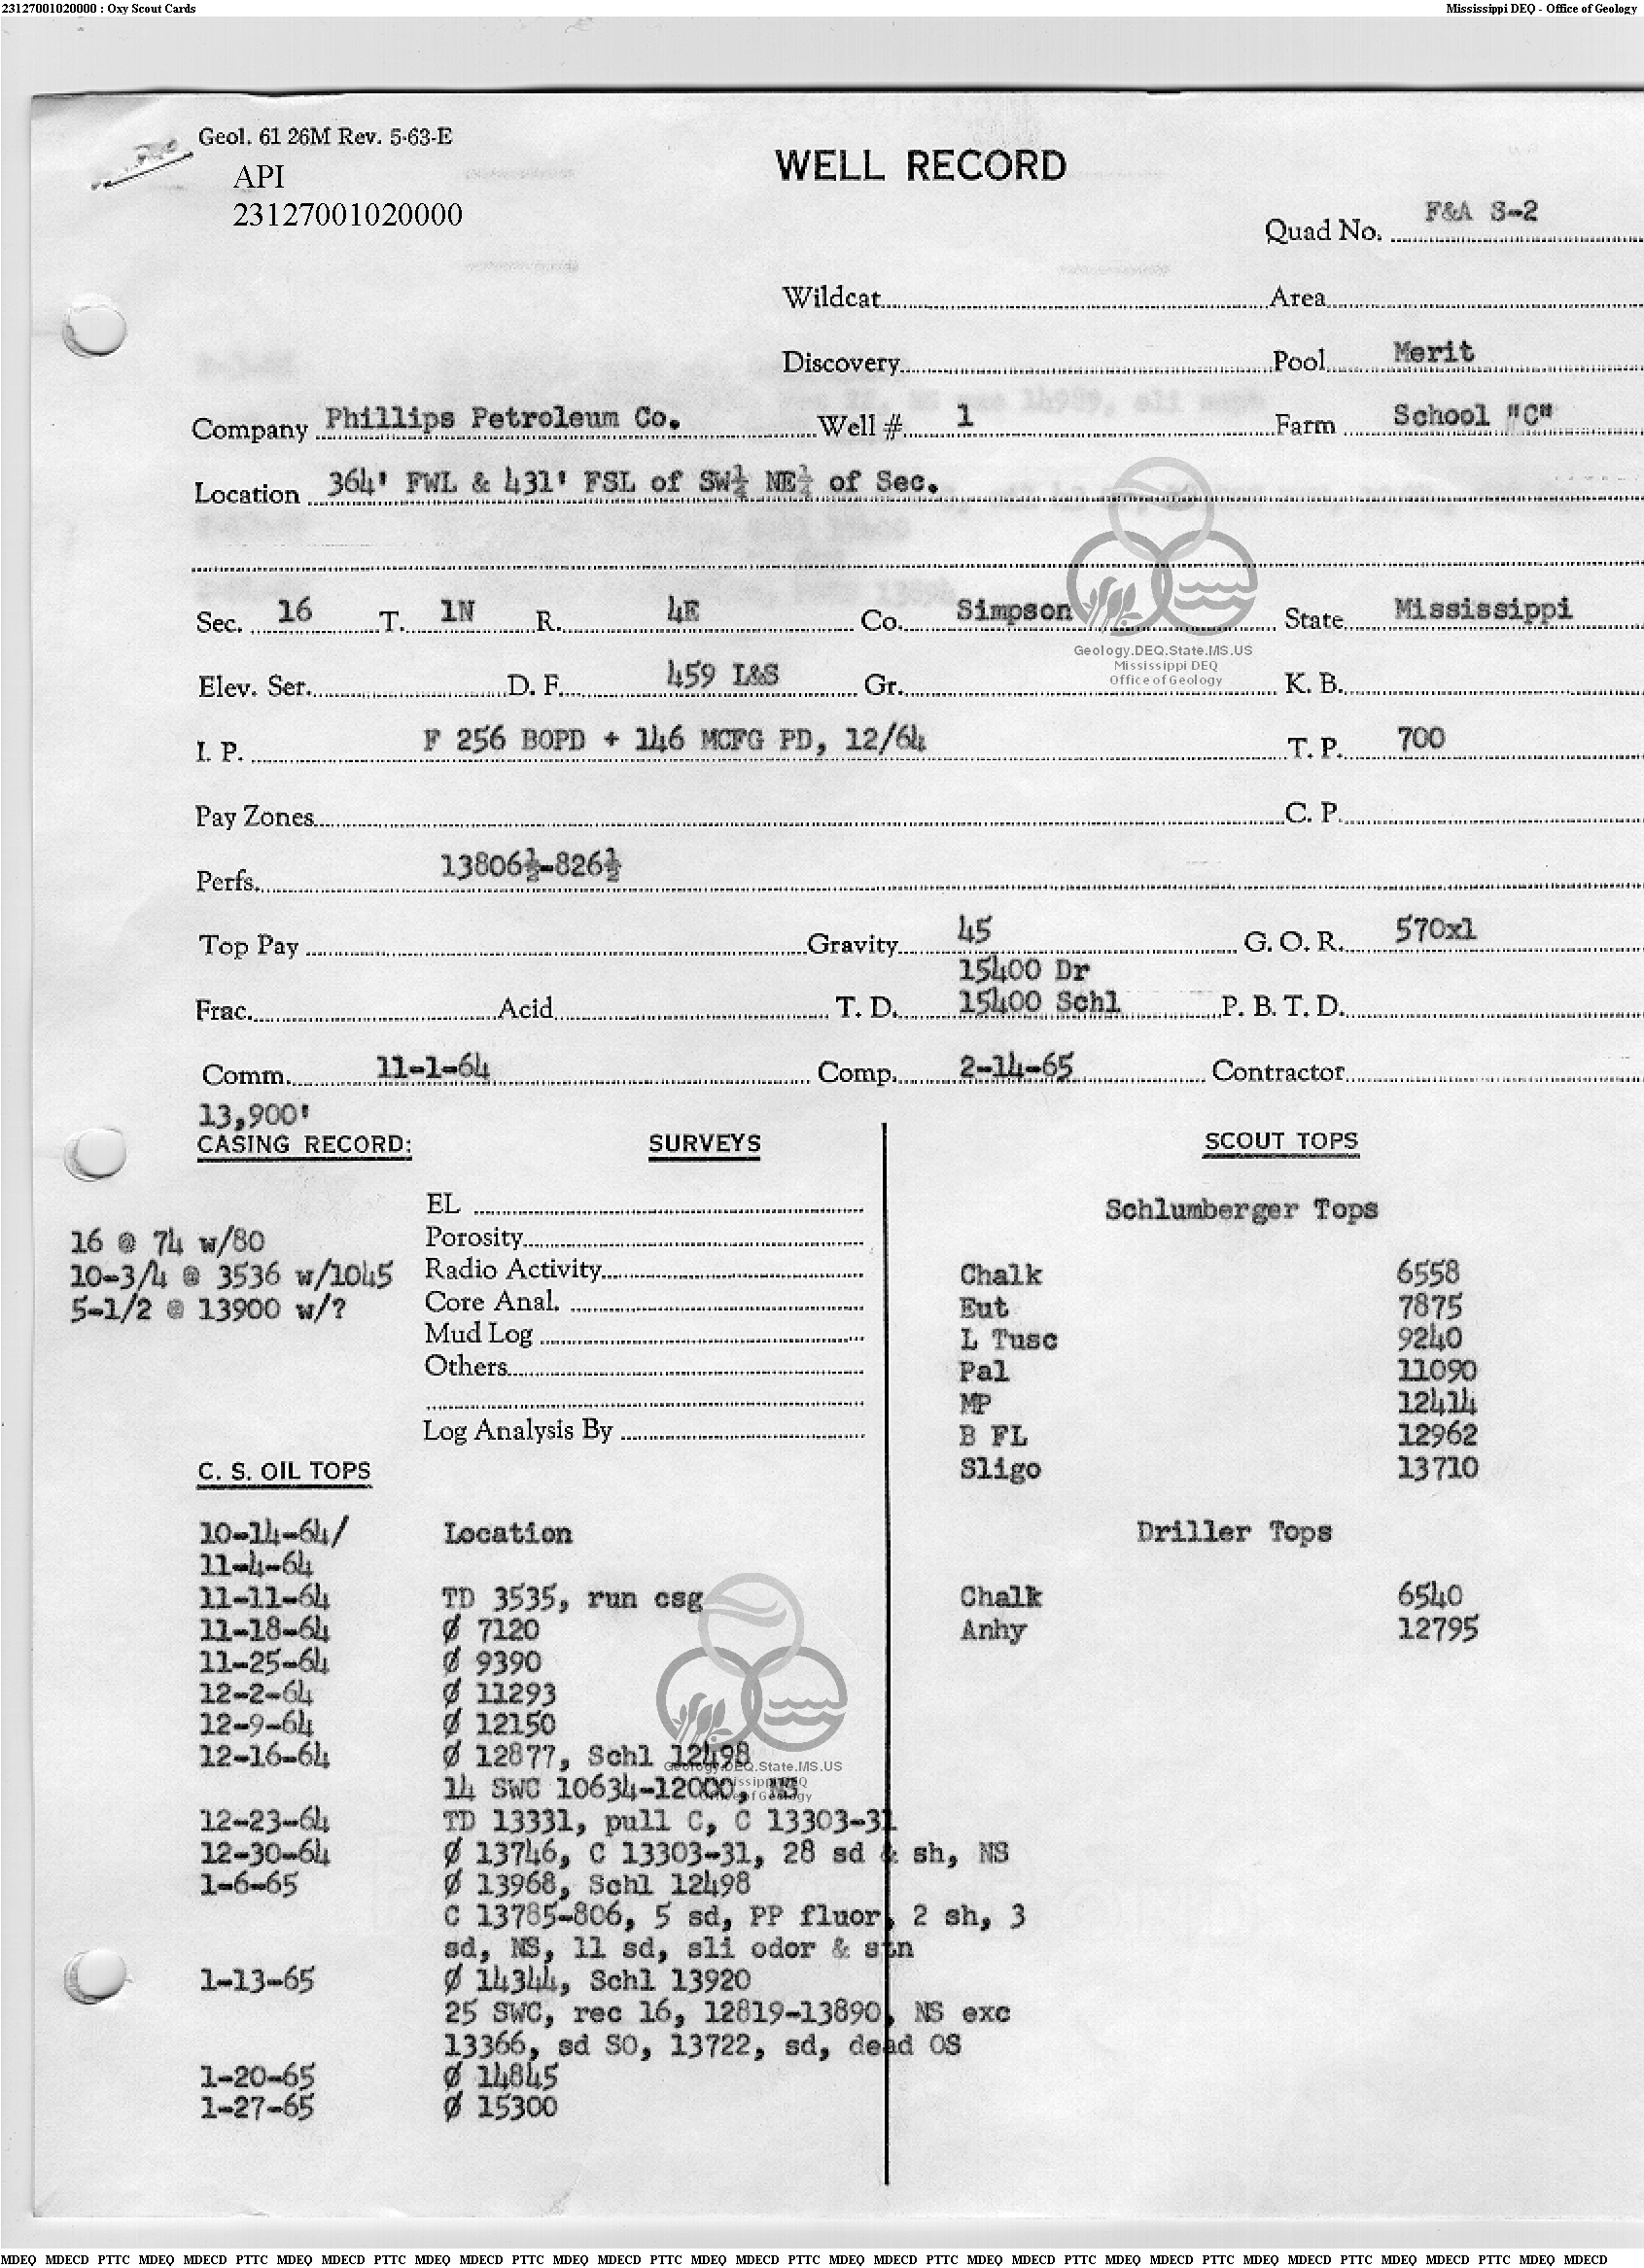 23127001020000 : Oxy Scout Cards Mississippi DEQ - Office of Geology
Geol. 61 26M Rev. 5-63-E
API
23127001020000
WELL RECORD
Quad No. F&A S-2
Wildcat Area
Discovery Pool Merit
Company Phillips Petroleum Co. Well # 1 Farm School "C"
Location 364' FWL & 431' FSL of SW¼ NE¼ of Sec.
Sec. 16 T. 1N R. 4E Co. Simpson State Mississippi
Geology.DEQ.State.MS.US
Mississippi DEQ
Office of Geology
Elev. Ser. D. F. 459 L&S Gr. K. B.
I. P. F 256 BOPD + 146 MCFG PD, 12/64 T. P. 700
Pay Zones C. P.
Perfs. 13806½-826½
Top Pay Gravity 45 G. O. R. 570x1
15400 Dr
Frac. Acid T. D. 15400 Schl P. B. T. D.
Comm. 11-1-64 Comp. 2-14-65 Contractor
13,900'
CASING RECORD: SURVEYS SCOUT TOPS
EL Schlumberger Tops
16 @ 74 w/80 Porosity
10-3/4 @ 3536 w/1045 Radio Activity Chalk 6558
5-1/2 @ 13900 w/? Core Anal. Eut 7875
Mud Log L Tusc 9240
Others Pal 11090
MP 12414
Log Analysis By B FL 12962
C. S. OIL TOPS Sligo 13710
10-14-64/ Location Driller Tops
11-4-64
11-11-64 TD 3535, run csg Chalk 6540
11-18-64 Ø 7120 Anhy 12795
11-25-64 Ø 9390
12-2-64 Ø 11293
12-9-64 Ø 12150
12-16-64 Ø 12877, Schl 12498
Geology.DEQ.State.MS.US
Mississippi DEQ
Office of Geology
14 SWC 10634-12000, NS
12-23-64 TD 13331, pull C, C 13303-31
12-30-64 Ø 13746, C 13303-31, 28 sd & sh, NS
1-6-65 Ø 13968, Schl 12498
C 13785-806, 5 sd, PP fluor, 2 sh, 3
sd, NS, 11 sd, sli odor & stn
1-13-65 Ø 14344, Schl 13920
25 SWC, rec 16, 12819-13890, NS exc
13366, sd SO, 13722, sd, dead OS
1-20-65 Ø 14845
1-27-65 Ø 15300
MDEQ MDECD PTTC MDEQ MDECD PTTC MDEQ MDECD PTTC MDEQ MDECD PTTC MDEQ MDECD PTTC MDEQ MDECD PTTC MDEQ MDECD PTTC MDEQ MDECD PTTC MDEQ MDECD PTTC MDEQ MDECD PTTC MDEQ MDECD PTTC MDEQ MDECD